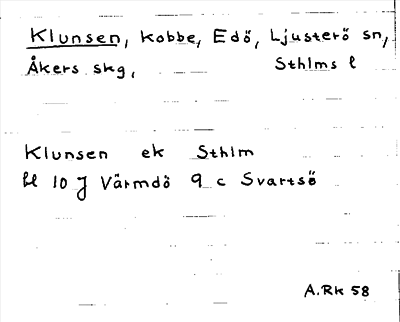 Klunsen, kobbe, Edö, Ljusterö sn,
Åkers skg, Sthlms l
Klunsen ek Sthlm
bl 10 J Värmdö 9 c Svartsö
A.Rk 58